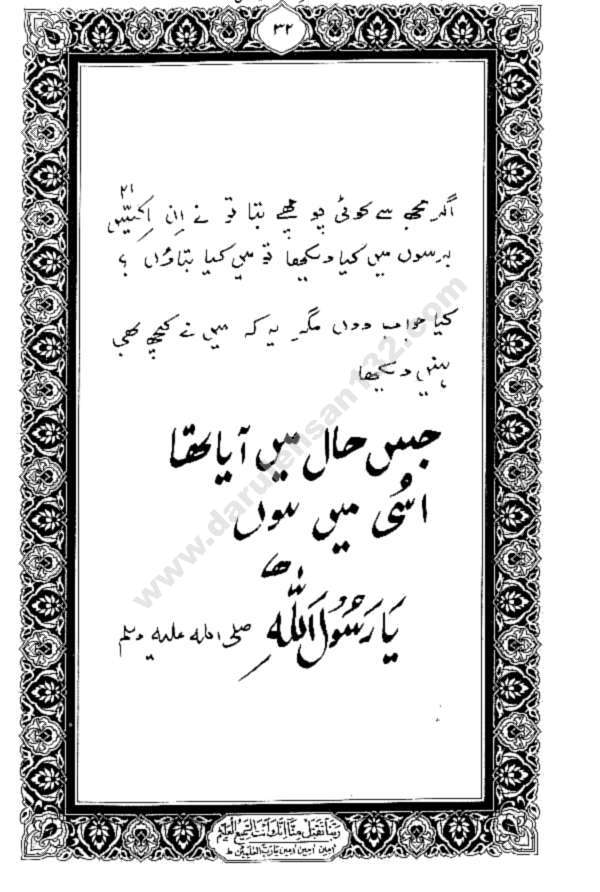 ۳۲
اگر مجھ سے کوئی پوچھے بتا تو نے اِن اکیس ۲۱
برسوں میں کیا دیکھا تو میں کیا بتاؤں ؟
کیا جواب دوں مگر یہ کہ میں نے کچھ بھی
نہیں دیکھا
جس حال میں آیا تھا
اُسی میں ہوں
یَا رَسُوْلَ اللّٰہِ صلی اللہ علیہ وسلم
ربنا تقبل منا انک انت السمیع العلیم
امین امین امین یا رب العلمین ط
www.darulehsan132.com